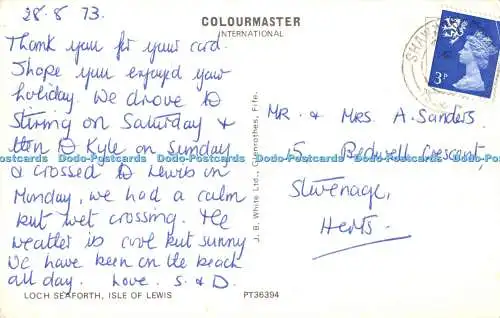 28.8.73.
COLOURMASTER
INTERNATIONAL
Thank you for your card.
I hope you enjoyed your
holiday. We drove to
Stirling on Saturday &
then to Kyle on Sunday
& crossed to Lewis on
Monday, we had a calm
but wet crossing. The
weather is cool but sunny
We have been on the beach
all day. Love. S. & D.
LOCH SEAFORTH, ISLE OF LEWIS
PT36394
J. B. White Ltd., Glenrothes, Fife.
3P
Mr. & Mrs A. Sanders.
15, Bedwell Crescent,
Stevenage,
Herts.
Dodo-Postcards Dodo-Postcards Dodo-Postcards Dodo-Postcards Dodo-Postcards